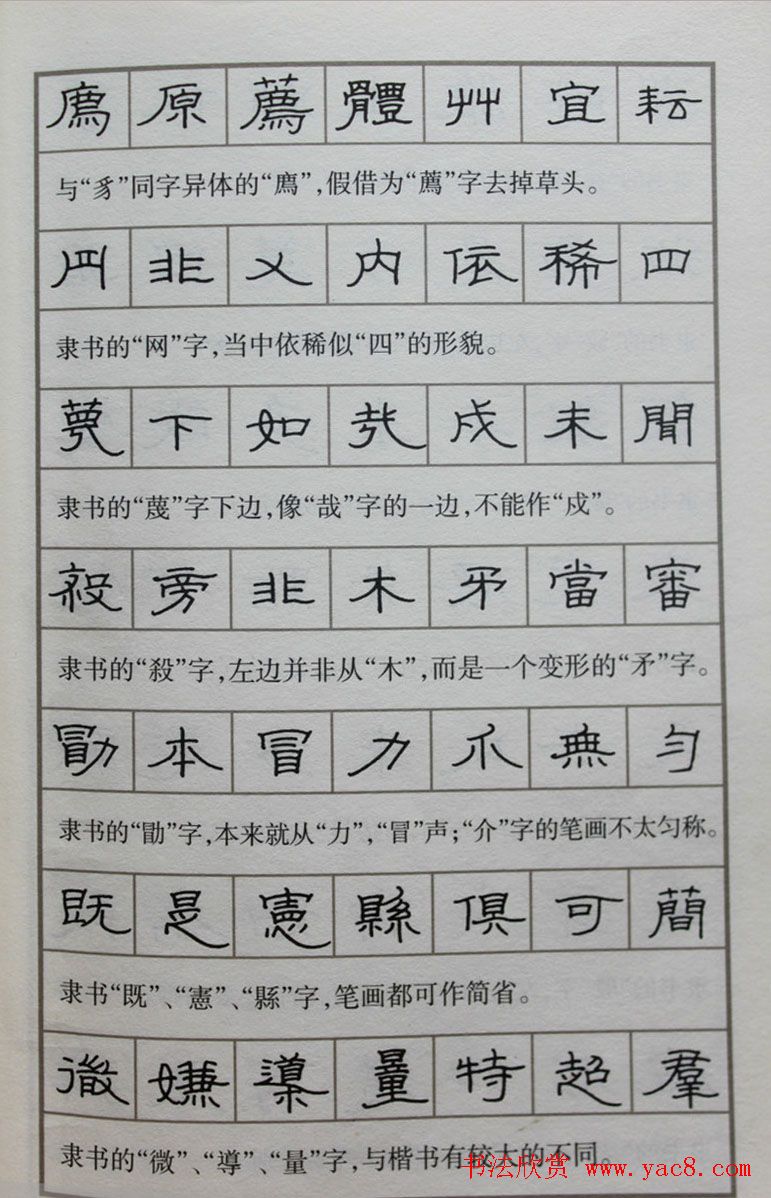 廌 原 薦 體 艸 宜 耘
与“豸”同字异体的“廌”,假借为“薦”字去掉草头。
非 乂 内 依 稀 四
隶书的“网”字,当中依稀似“四”的形貌。
下 如 戍 未 聞
隶书的“蔑”字下边,像“哉”字的一边,不能作“戍”。
殺 旁 非 木 矛 當 審
隶书的“殺”字,左边并非从“木”,而是一个变形的“矛”字。
勖 本 冒 力 爪 無 匀
隶书的“勖”字,本来就从“力”,“冒”声;“介”字的笔画不太匀称。
既 是 憲 縣 俱 可 簡
隶书“既”、“憲”、“縣”字,笔画都可作简省。
微 嫌 導 量 特 超 羣
隶书的“微”、“導”、“量”字,与楷书有较大的不同。
书法欣赏 www.yac8.com